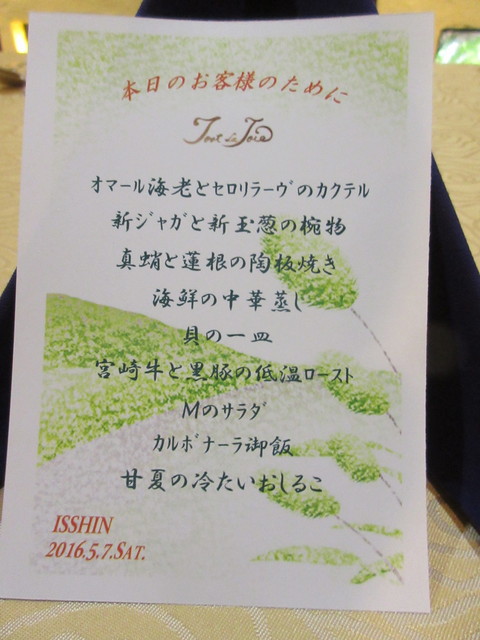 本日のお客様のために
Tout la Joie
オマール海老とセロリラーヴのカクテル
新ジャガと新玉葱の椀物
真蛸と蓮根の陶板焼き
海鮮の中華蒸し
貝の一皿
宮崎牛と黒豚の低温ロースト
Mのサラダ
カルボナーラ御飯
甘夏の冷たいおしるこ
ISSHIN
2016.5.7.SAT.